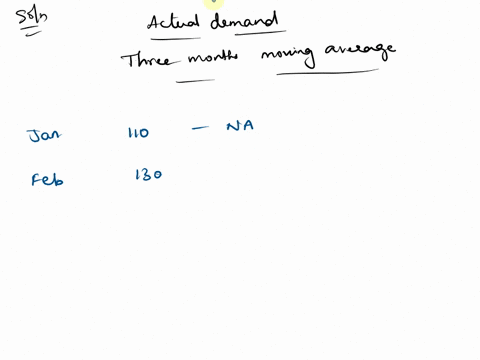 Soln
Actual demand
Three months moving average
Jan 110 — NA
Feb 130